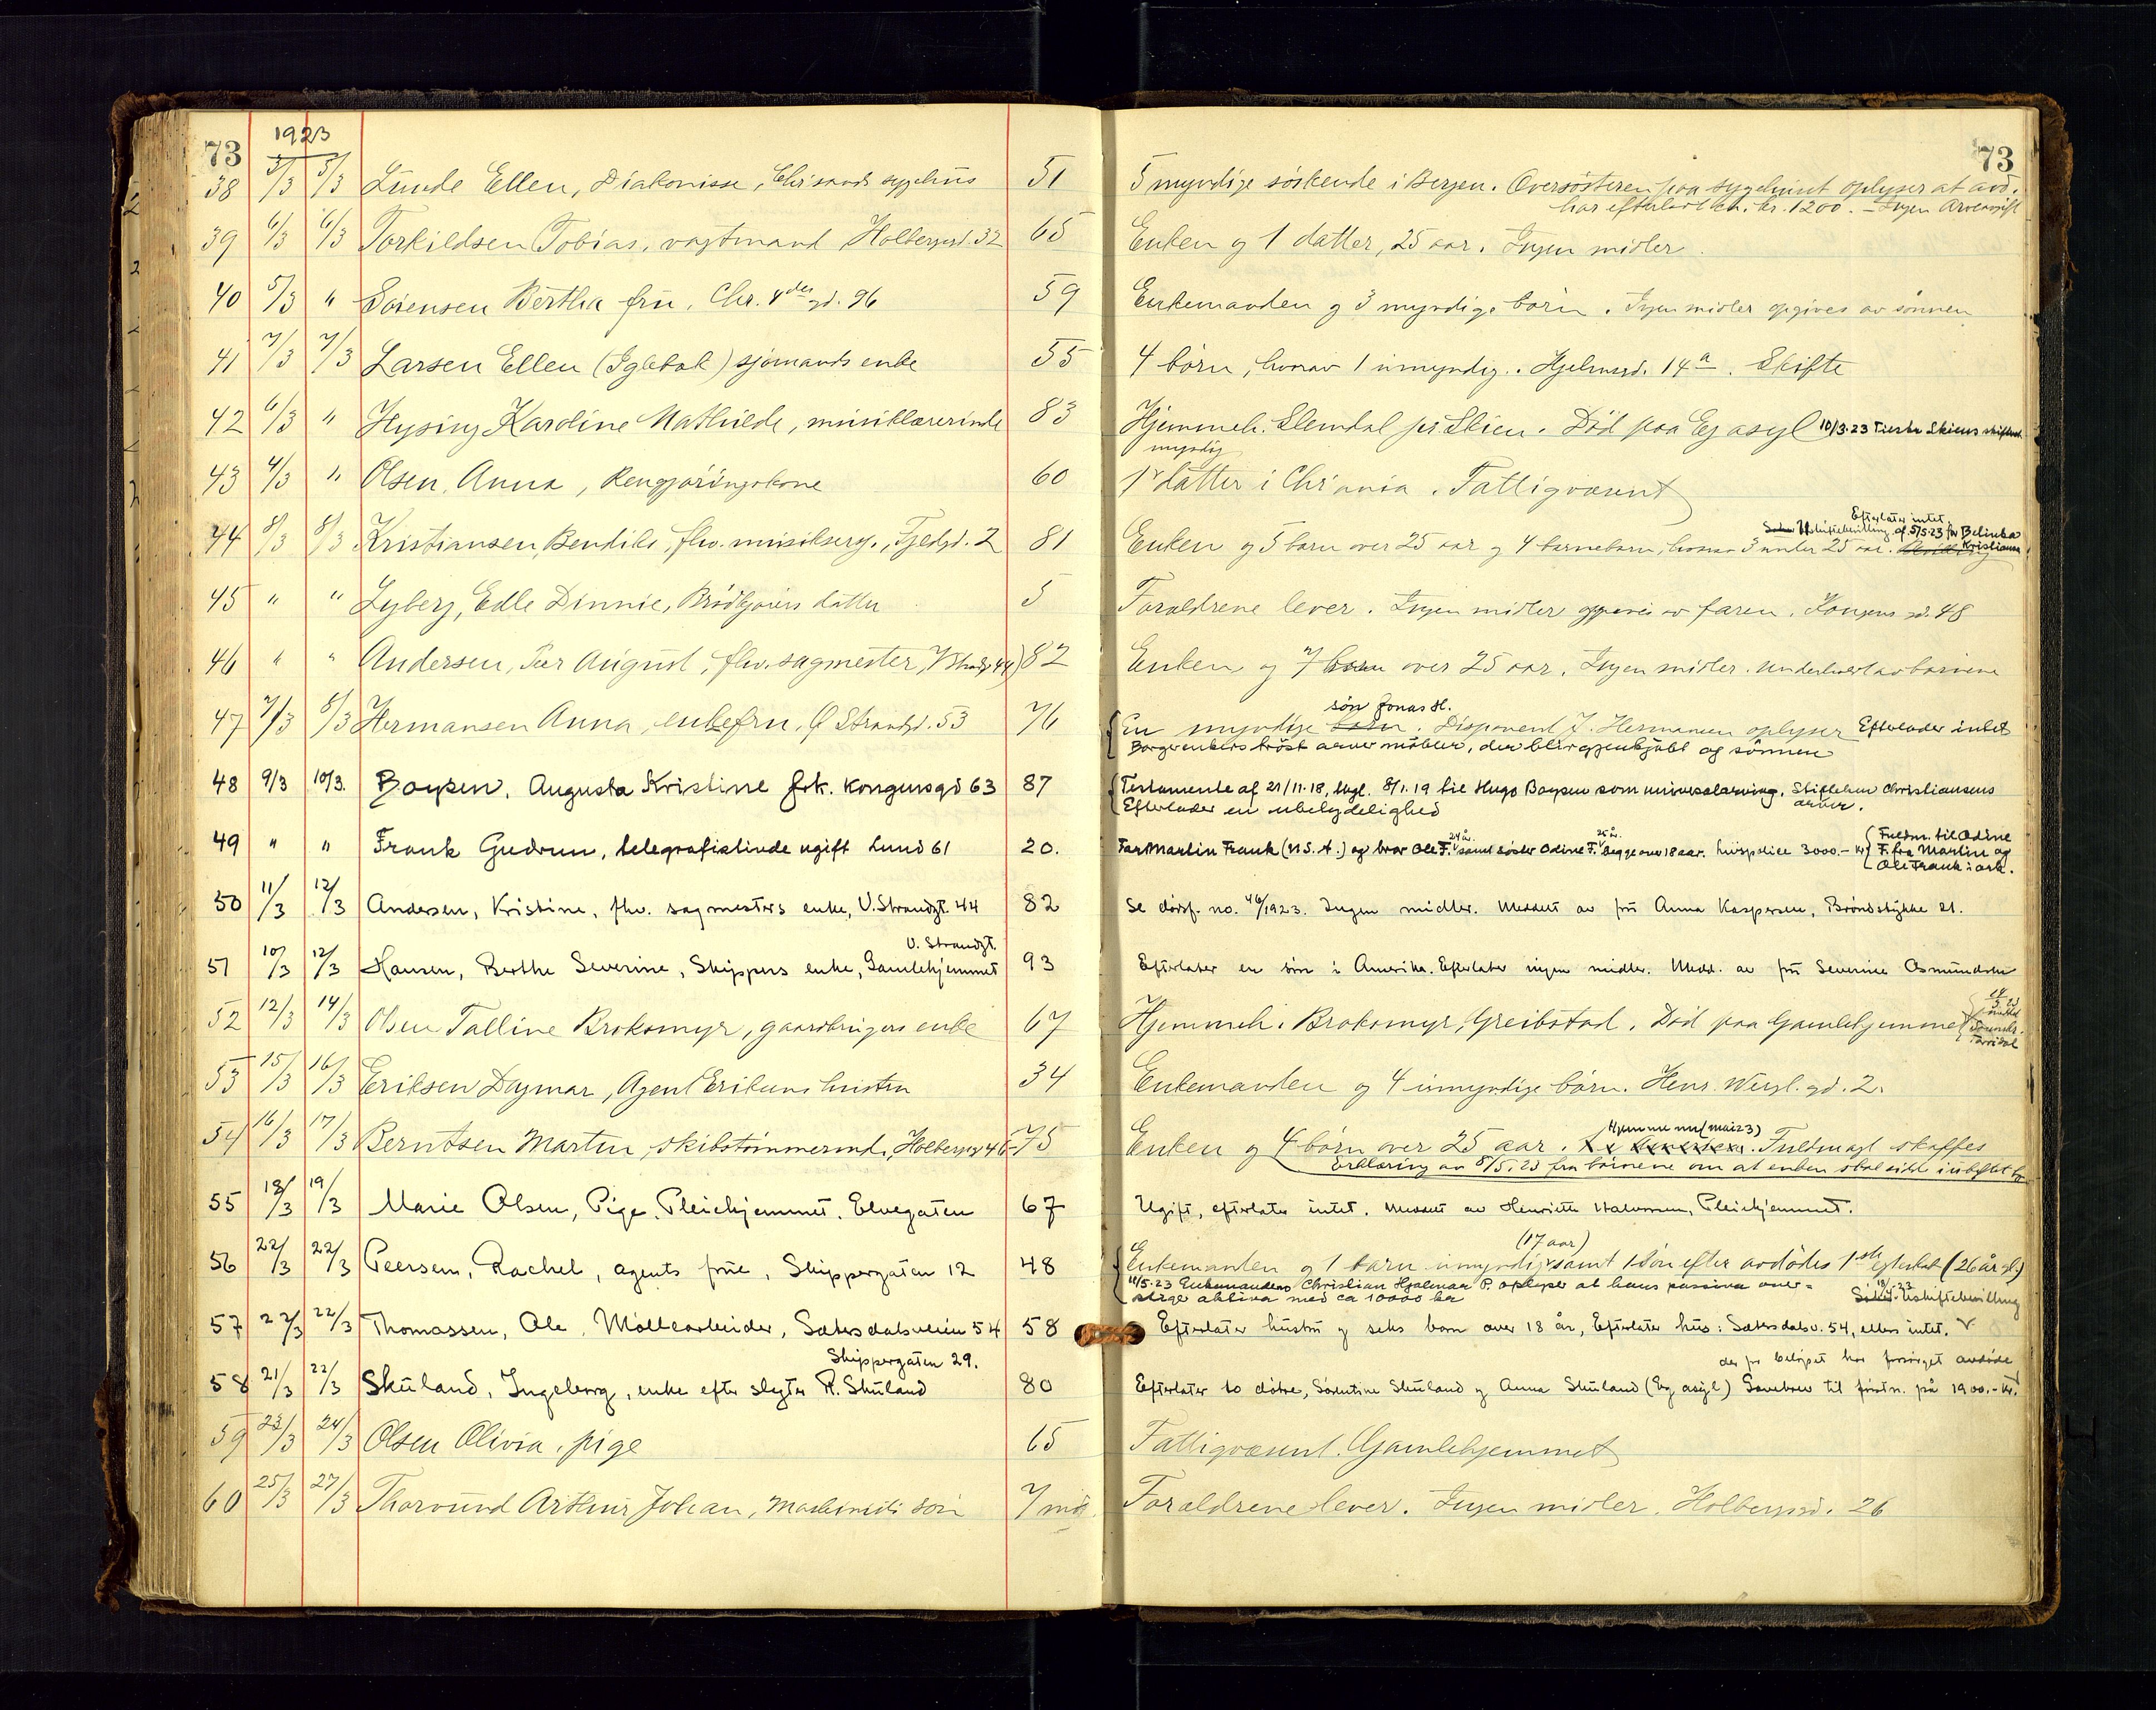 73 1923 73
38 3/3 5/3 Lunde Ellen, Diakonisse, Chr.sands sygehus 51 5 myndige søskende i Bergen. Oversøsteren paa sygehuset oplyser at avd.
har efterladt ca. kr. 1200. – Ingen arveavgift
39 6/3 6/3 Torkildsen Tobias, vagtmand Holbergsgd. 32 65 Enken og 1 datter, 25 aar. Ingen midler.
40 5/3 " Sørensen Bertha fru, Chr. 4des gd. 96 59 Enkemanden og 3 myndige børn. Ingen midler opgives av sønnen
41 7/3 7/3 Larsen Ellen (Iglebæk) sjømands enke 55 4 børn, hvorav 1 umyndig. Hjelmsgd. 14a. Skifte
42 6/3 " Hysing Karoline Mathilde, musiklærerinde 83 Hjemmeh. Slemdal pr. Skien. Død paa Eg asyl 10/3.23 Tilstr Skiens skifteret
myndig
43 4/3 " Olsen, Anna, Rengjøringskone 60 1 datter i Chr'ania. Fattigvæsent
Efterlater intet
Uskiftebevilling af 5/5.23 for Belinka Kristiansen
44 8/3 8/3 Kristiansen Bendiks, fhv. musiksergt., Tjedgd. 2 81 Enken og 5 barn over 25 aar og 4 barnebarn, hvorav 3 under 25 aar.
45 " " Lyberg, Edle Dinnie, Brødkjørers datter 5 Forældrene lever. Ingen midler opgives av faren. Kongens gd. 48
46 " " Andersen, Peer August, fhv. sagmester, V Strandg 44) 82 Enken og 7 barn over 25 aar. Ingen midler. Underholdt av barnene
søn Jonas H.
47 7/3 8/3 Hermansen Anna, enkefru, Ø Strandgd. 53 76 En myndige barn. Disponent J. Hermansen oplyser Efterlader intet
Borgerenkers trøst arver møbler, der blir gjenkjøbt af sønnen
48 9/3 10/3. Boysen, Augusta Kristine frk. Kongensgd 63 87 Testamente af 21/11.18, tlgl. 8/1.19 til Hugo Boysen som universalarving, Stiftelsen Christiansens
Efterlader en ubetydelighed arver.
49 " " Frank Gudrun, telegrafistinde ugift Lund 61 20. Far Martin Frank (U.S.A.) og bror Ole F. 24 år. samt søster Odine F. 25 år. begge over 18 aar. livspolice 3000.– kr. Fuldm. til Odine
F. fra Martin og
Ole Frank i ark.
50 11/3 12/3 Andersen, Kristine, fhv. sagmesters enke, V. Strandgt. 44 82 Se dødsf. no. 46/1923. Ingen midler. Meddelt av fru Anna Kaspersen, Brøndstykke 21.
V. Strandgt.
51 10/3 12/3 Hansen, Berthe Severine, Skippers enke, Gamlehjemmet 93 Efterlater en søn i Amerika. Efterlater ingen midler. Medd. av fru Severine Osmundsen
52 12/3 14/3 Olsen Talline Broksmyr, gaardbrugers enke 67 Hjemmeh. Broksmyr, Greibstad. Død paa Gamlehjemmet
53 15/3 16/3 Eriksen Dagmar, Agent Eriksens hustru 34 Enkemanden og 4 umyndige børn. Henr. Wergl. gd. 2.
Hjemme nu (mai 23)
54 16/3 17/3 Berntsen Martin, skibstømmermd., Holbergsg 46 75 Enken og 4 børn over 25 aar. Fuldmagt skaffes
Erklæring av 8/5.23 fra børnene om at enken skal sidde i uskiftet bo
55 18/3 19/3 Marie Olsen, Pige, Pleiehjemmet, Elvegaten 67 Ugift, efterlater intet. Meddelt av Henriette Halvorsen, Pleiehjemmet.
(17 aar)
56 22/3 22/3 Peersen, Rachel, agents frue, Skippergaten 12 48 Enkemanden og 1 barn umyndig samt 1 søn efter avdødes 1ste egteskab (26 år gl.)
11/5.23 Enkemanden Christian Hjalmar P. oplyser at hans passiva over-
stige aktiva med ca 10000 kr Uskiftebevilling
57 22/3 22/3 Thomassen, Ole, Møllearbeider, Sætersdalsveien 54 58 Efterlater hustru og seks barn over 18 år, Efterlater hus: Sætersdalsv. 54, ellers intet. V
Skippergaten 29. der for beløpet har forsørget avdøde
58 21/3 22/3 Skuland, Ingeborg, enke efter slagter R. Skuland 80 Efterlater to døtre, Sørentine Skuland og Anna Skuland (Eg asyl) Gavebrev til førstn. på 1900.– kr.
59 23/3 24/3 Olsen Olivia, pige 65 Fattigvæsent. Gamlehjemmet
60 25/3 27/3 Thorsund Arthur Johan, Maskinists søn 7 md. Forældrene lever. Ingen midler. Holbergsgd. 26